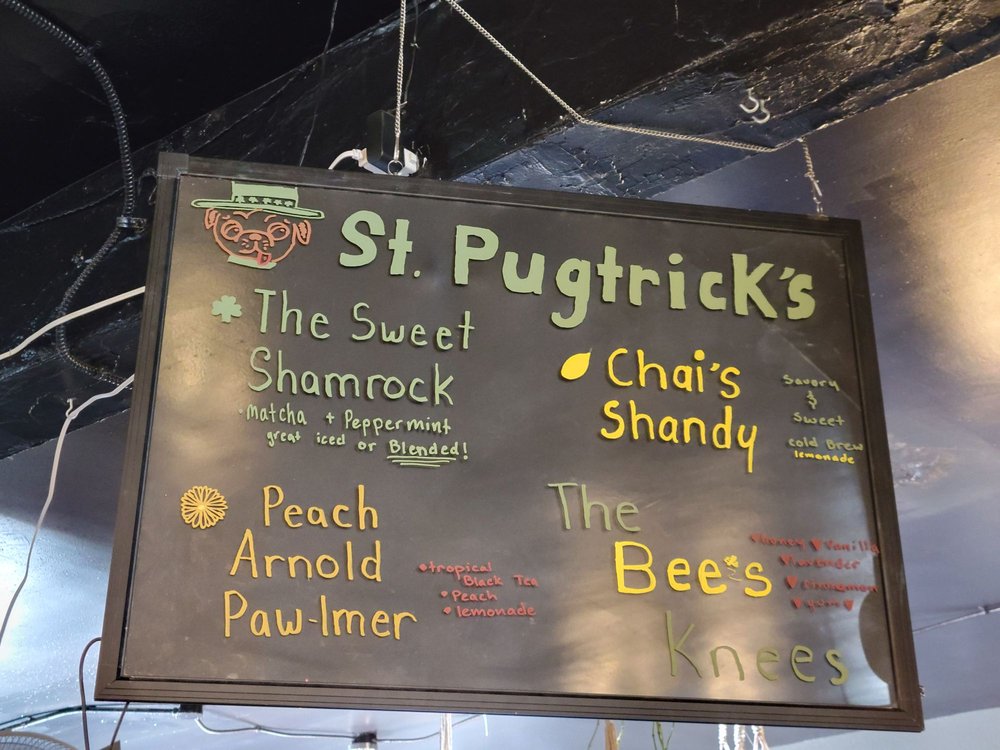 St. Pugtrick's
The Sweet
Shamrock
•Matcha + Peppermint
great iced or Blended!
Chai's
Shandy
Savory
&
Sweet
Cold Brew
lemonade
Peach
Arnold
Paw-lmer
•tropical
Black Tea
•Peach
•lemonade
The
Bee's
Knees
♥Honey ♥Vanilla
♥Lavender
♥Cinnamon
♥yum♥